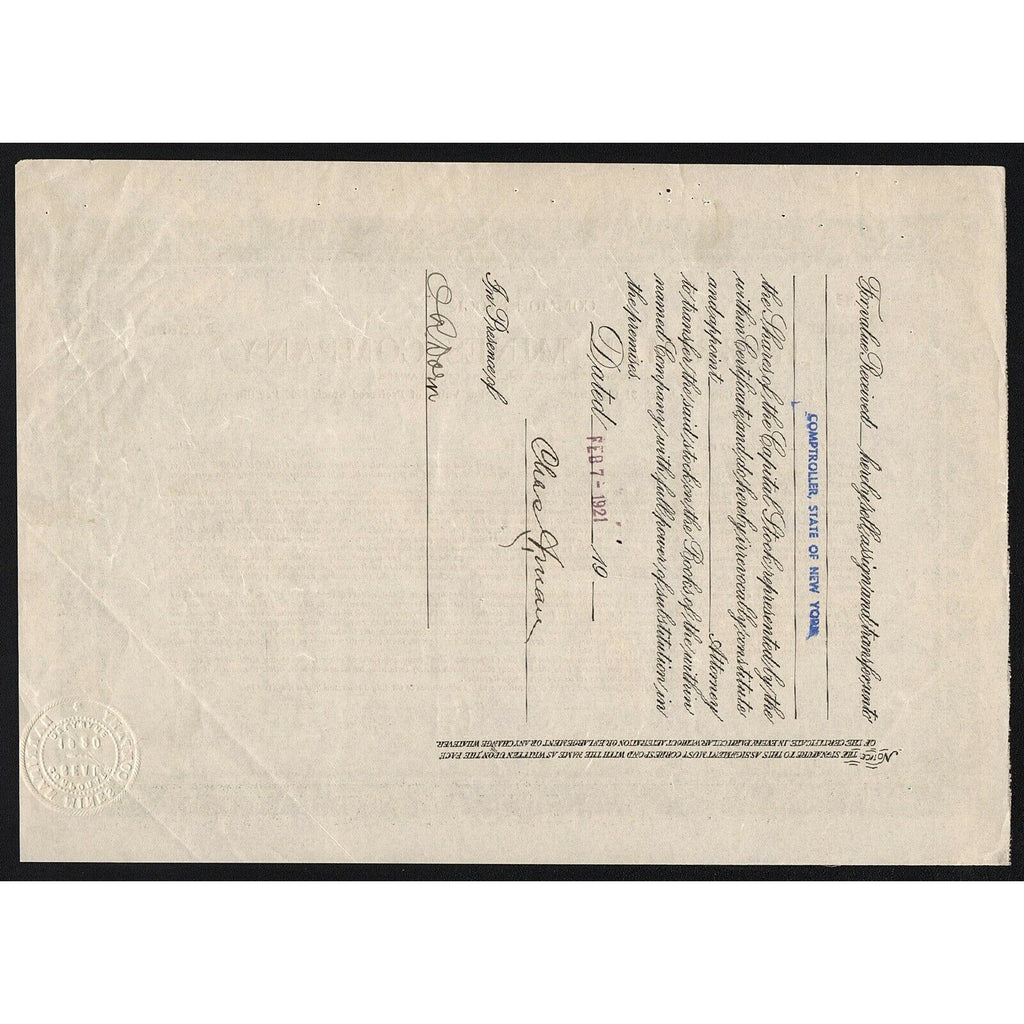 For value Received hereby sell, assign and transfer unto
COMPTROLLER, STATE OF NEW YORK
the Shares of the Capital Stock represented by the
within Certificate, and do hereby irrevocably constitute
and appoint
Attorney
to transfer the said stock on the Books of the within
named Company, with full power of substitution in
the premises.
Dated FEB 7 - 1921 19
In Presence of
NOTICE THE SIGNATURE TO THIS ASSIGNMENT MUST CORRESPOND WITH THE NAME AS WRITTEN UPON THE FACE
OF THE CERTIFICATE IN EVERY PARTICULAR WITHOUT ALTERATION OR ENLARGEMENT OR ANY CHANGE WHATEVER.